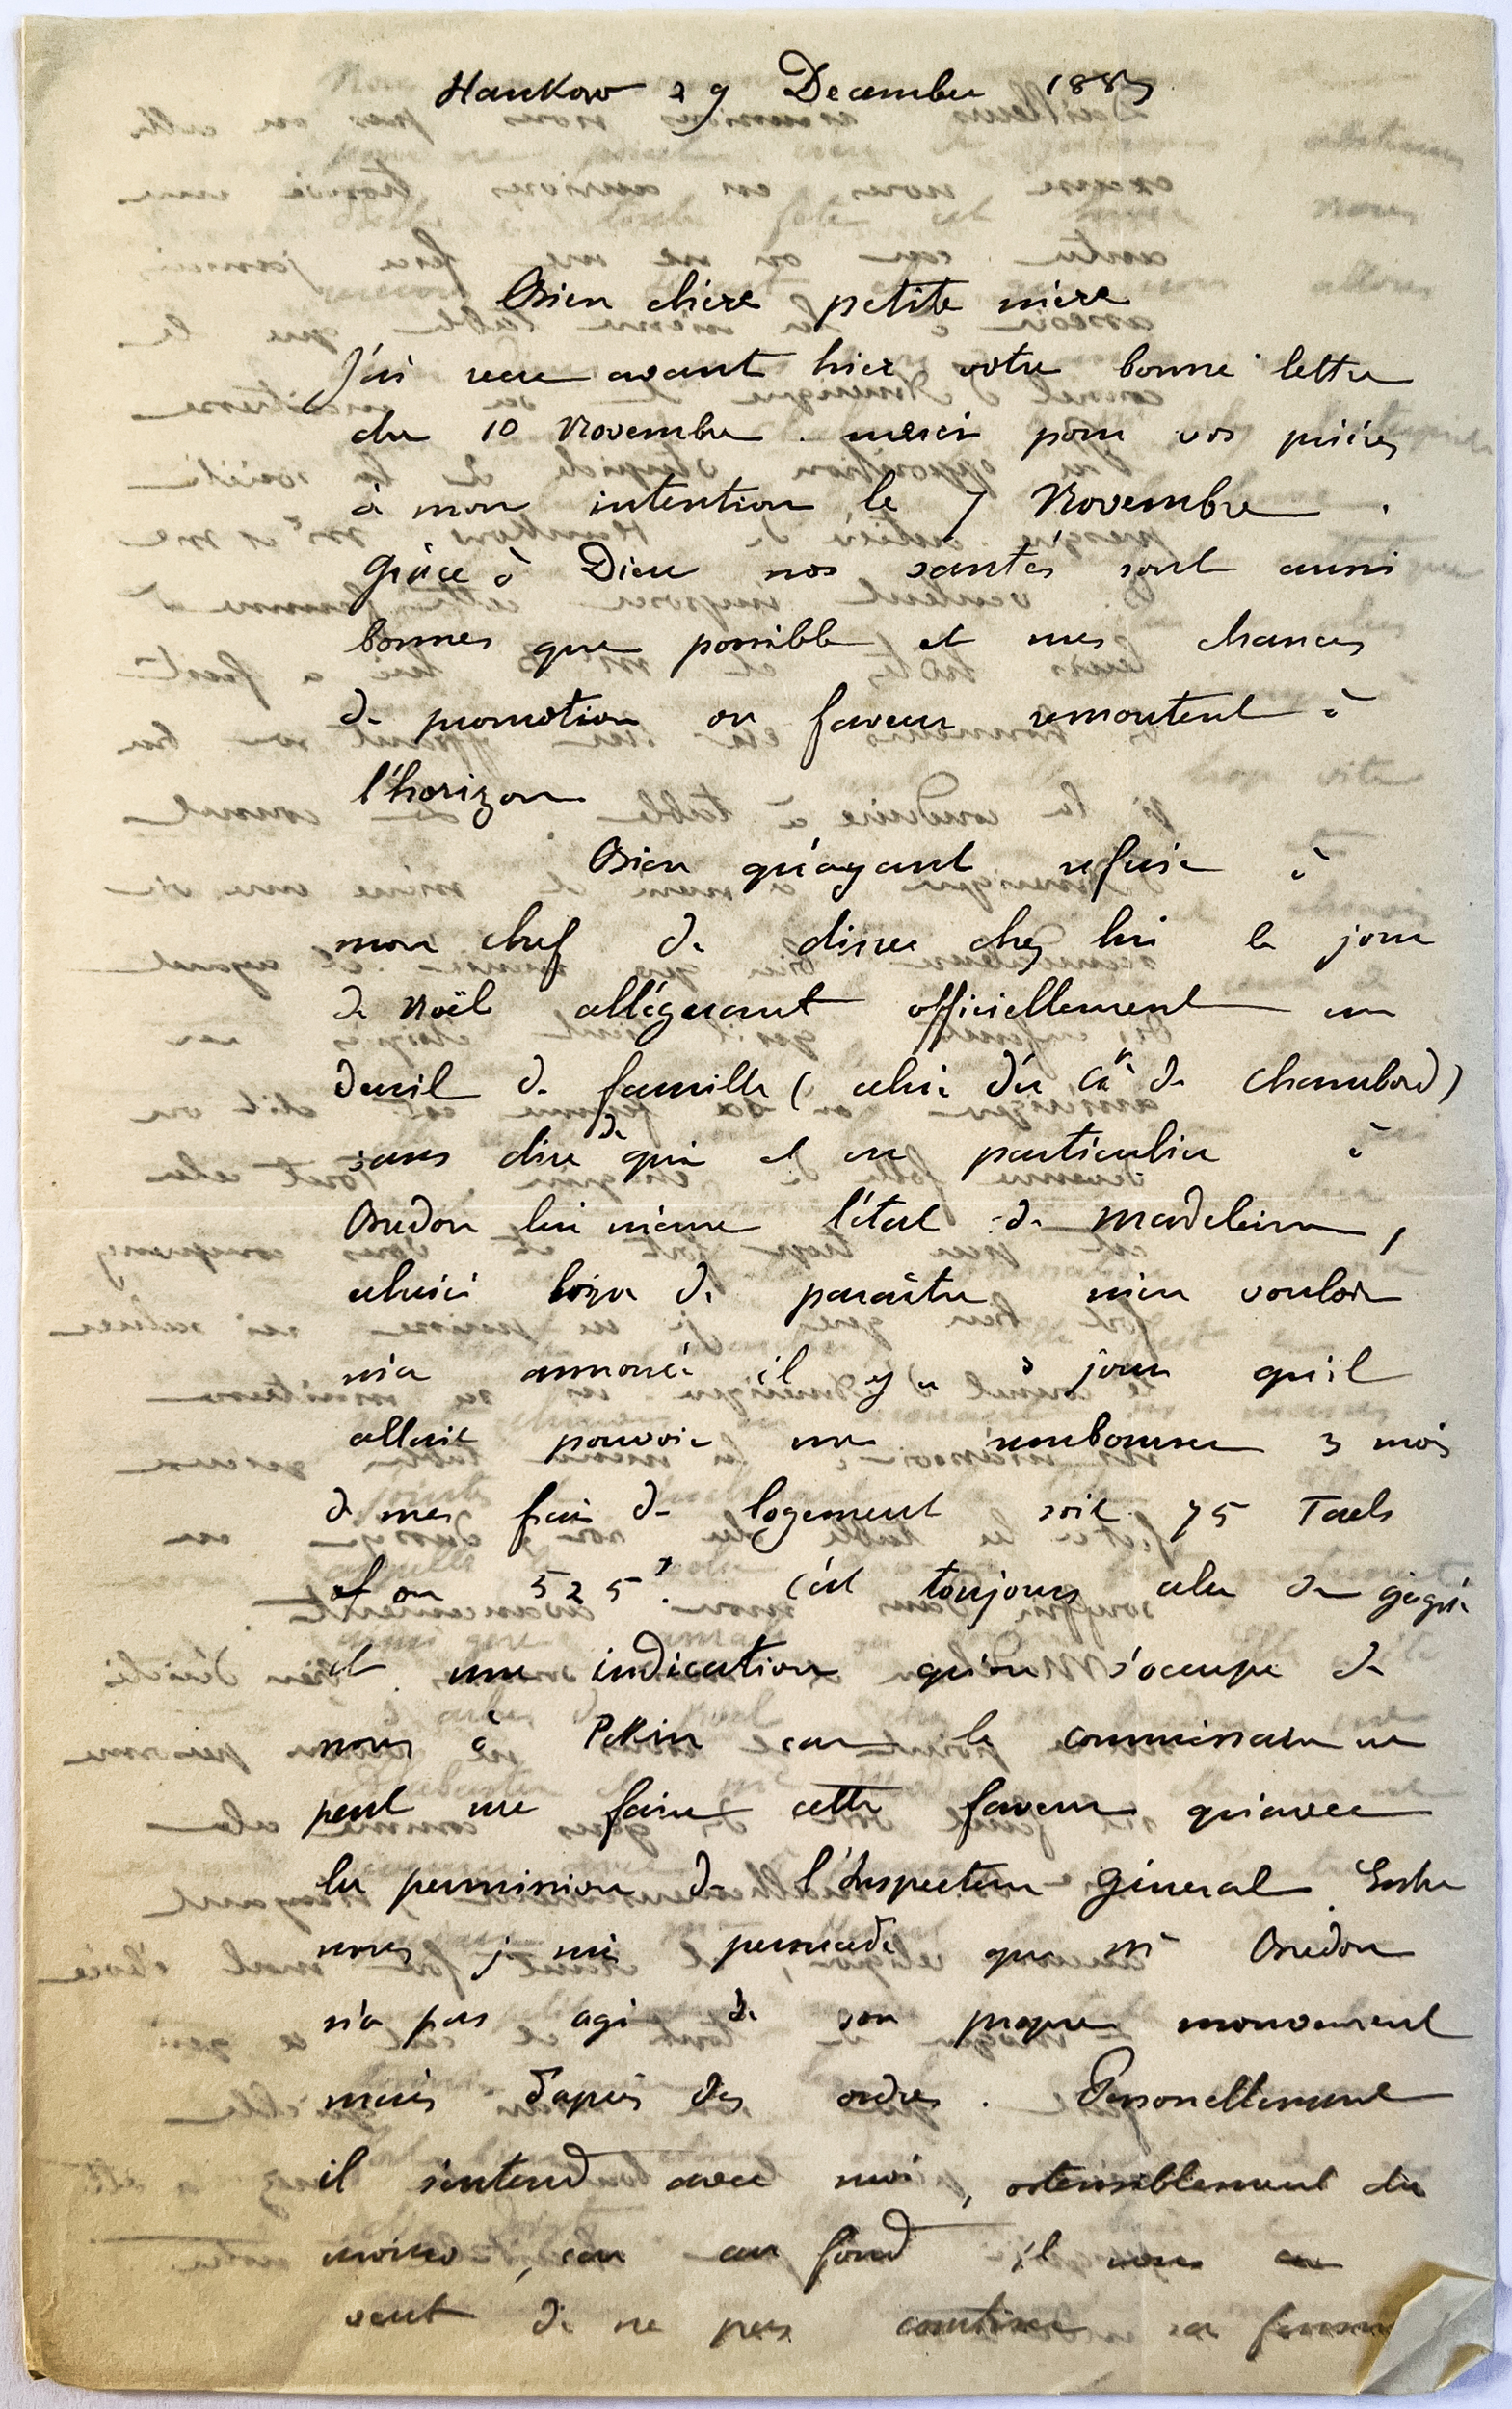 Hankow 29 December 1883
Bien chère petite mère
J'ai reçu avant hier votre bonne lettre
du 10 Novembre. merci pour vos prières
à mon intention le 7 Novembre.
Grâce à Dieu nos santés sont aussi
bonnes que possible et mes chances
de promotion ou faveur remontent à
l'horizon
Bien qu'ayant refusé à
mon chef de diner chez lui le jour
de Noël alléguant officiellement un
deuil de famille (celui du Cte de Chambord)
sans dire de qui et en particulier à
Bredon lui même l'état de Madeleine,
celui ci loin de paraître m'en vouloir
m'a annoncé il y a jours qu'il
allait pouvoir me rembourser 3 mois
de mes frais de logement soit 75 Taels
on 525f. C'est toujours cela de gagné
et une indication qu'on s'occupe de
nous à Pekin car le commissaire ne
peut me faire cette faveur qu'avec
la permission de l'Inspecteur Général. Entre
nous je me persuade que Mr Bredon
n'a pas agi de son propre mouvement
mais d'après des ordres. Personellement
il s'entend avec moi, ostensiblement du
moins, car au fond il nous en
veut de ne pas courtiser sa femme